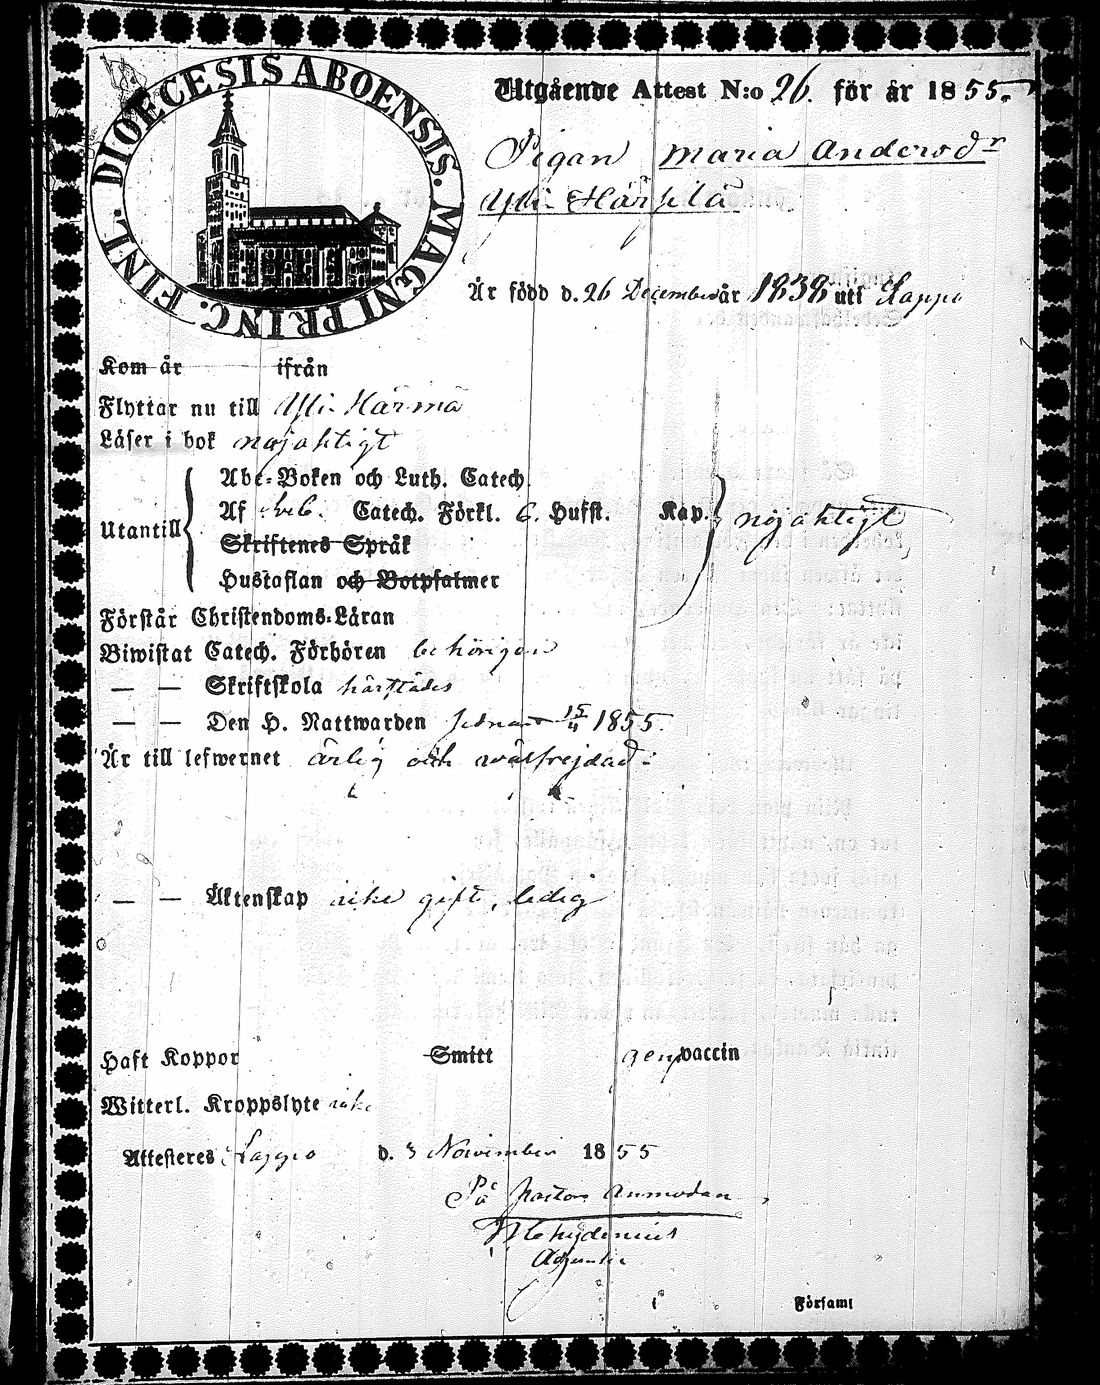 DIOECESIS ABOENSIS. MAGNI PRINC. FINL.
Utgående Attest N:o 26. för år 1855.
Pigan Maria Andersdr
Yli Härsilä
Är född d. 26 December år 1838 uti Lappo
Kom år ifrån
Flyttar nu till Ylihärmä
Läser i bok nöjaktigt
Utantill
Abc-Boken och Luth. Catech.
Af Sveb. Catech. Förkl. 6. Hufst. Kap. nöjaktigt
Skriftenes Språk
Hustaflan och Botpsalmer
Förstår Christendoms-Läran
Biwistat Catech. Förhören behörigen
— — Skriftskola härstädes
— — Den H. Nattwarden 15/4 1855.
Är till lefwernet ärlig och wälfrejdad.
— — Äktenskap icke gift, ledig
Haft Koppor Smitt gen vaccin
Witterl. Kroppslyte icke
Attesteres Lappo d. 3 November 1855
På Pastors Anmodan
Adjunkt
Förfaml